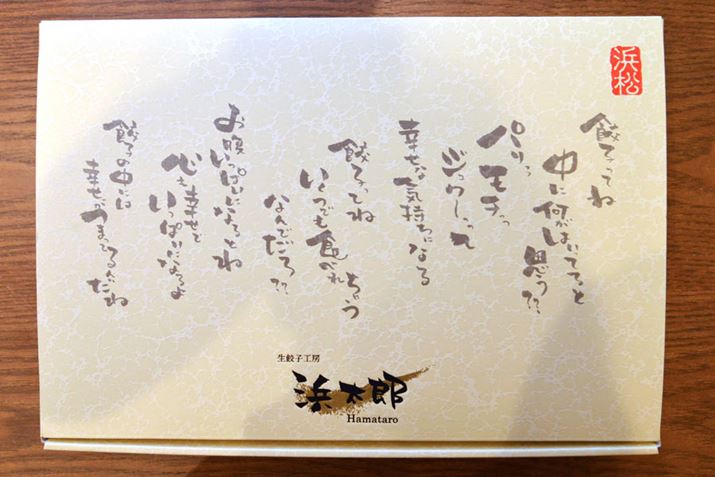 浜松
餃子ってね
中に何がはいってると
思う??
パリっ
モチっ
ジュワーって
幸せな気持ちになる
餃子ってね
いくつでも食べれ
ちゃう
なんでだろ??
お腹いっぱいになるとね
心も幸せで
いっぱいになるよ
餃子の中には
幸せがつまってるんだね
生餃子工房
浜太郎
Hamataro